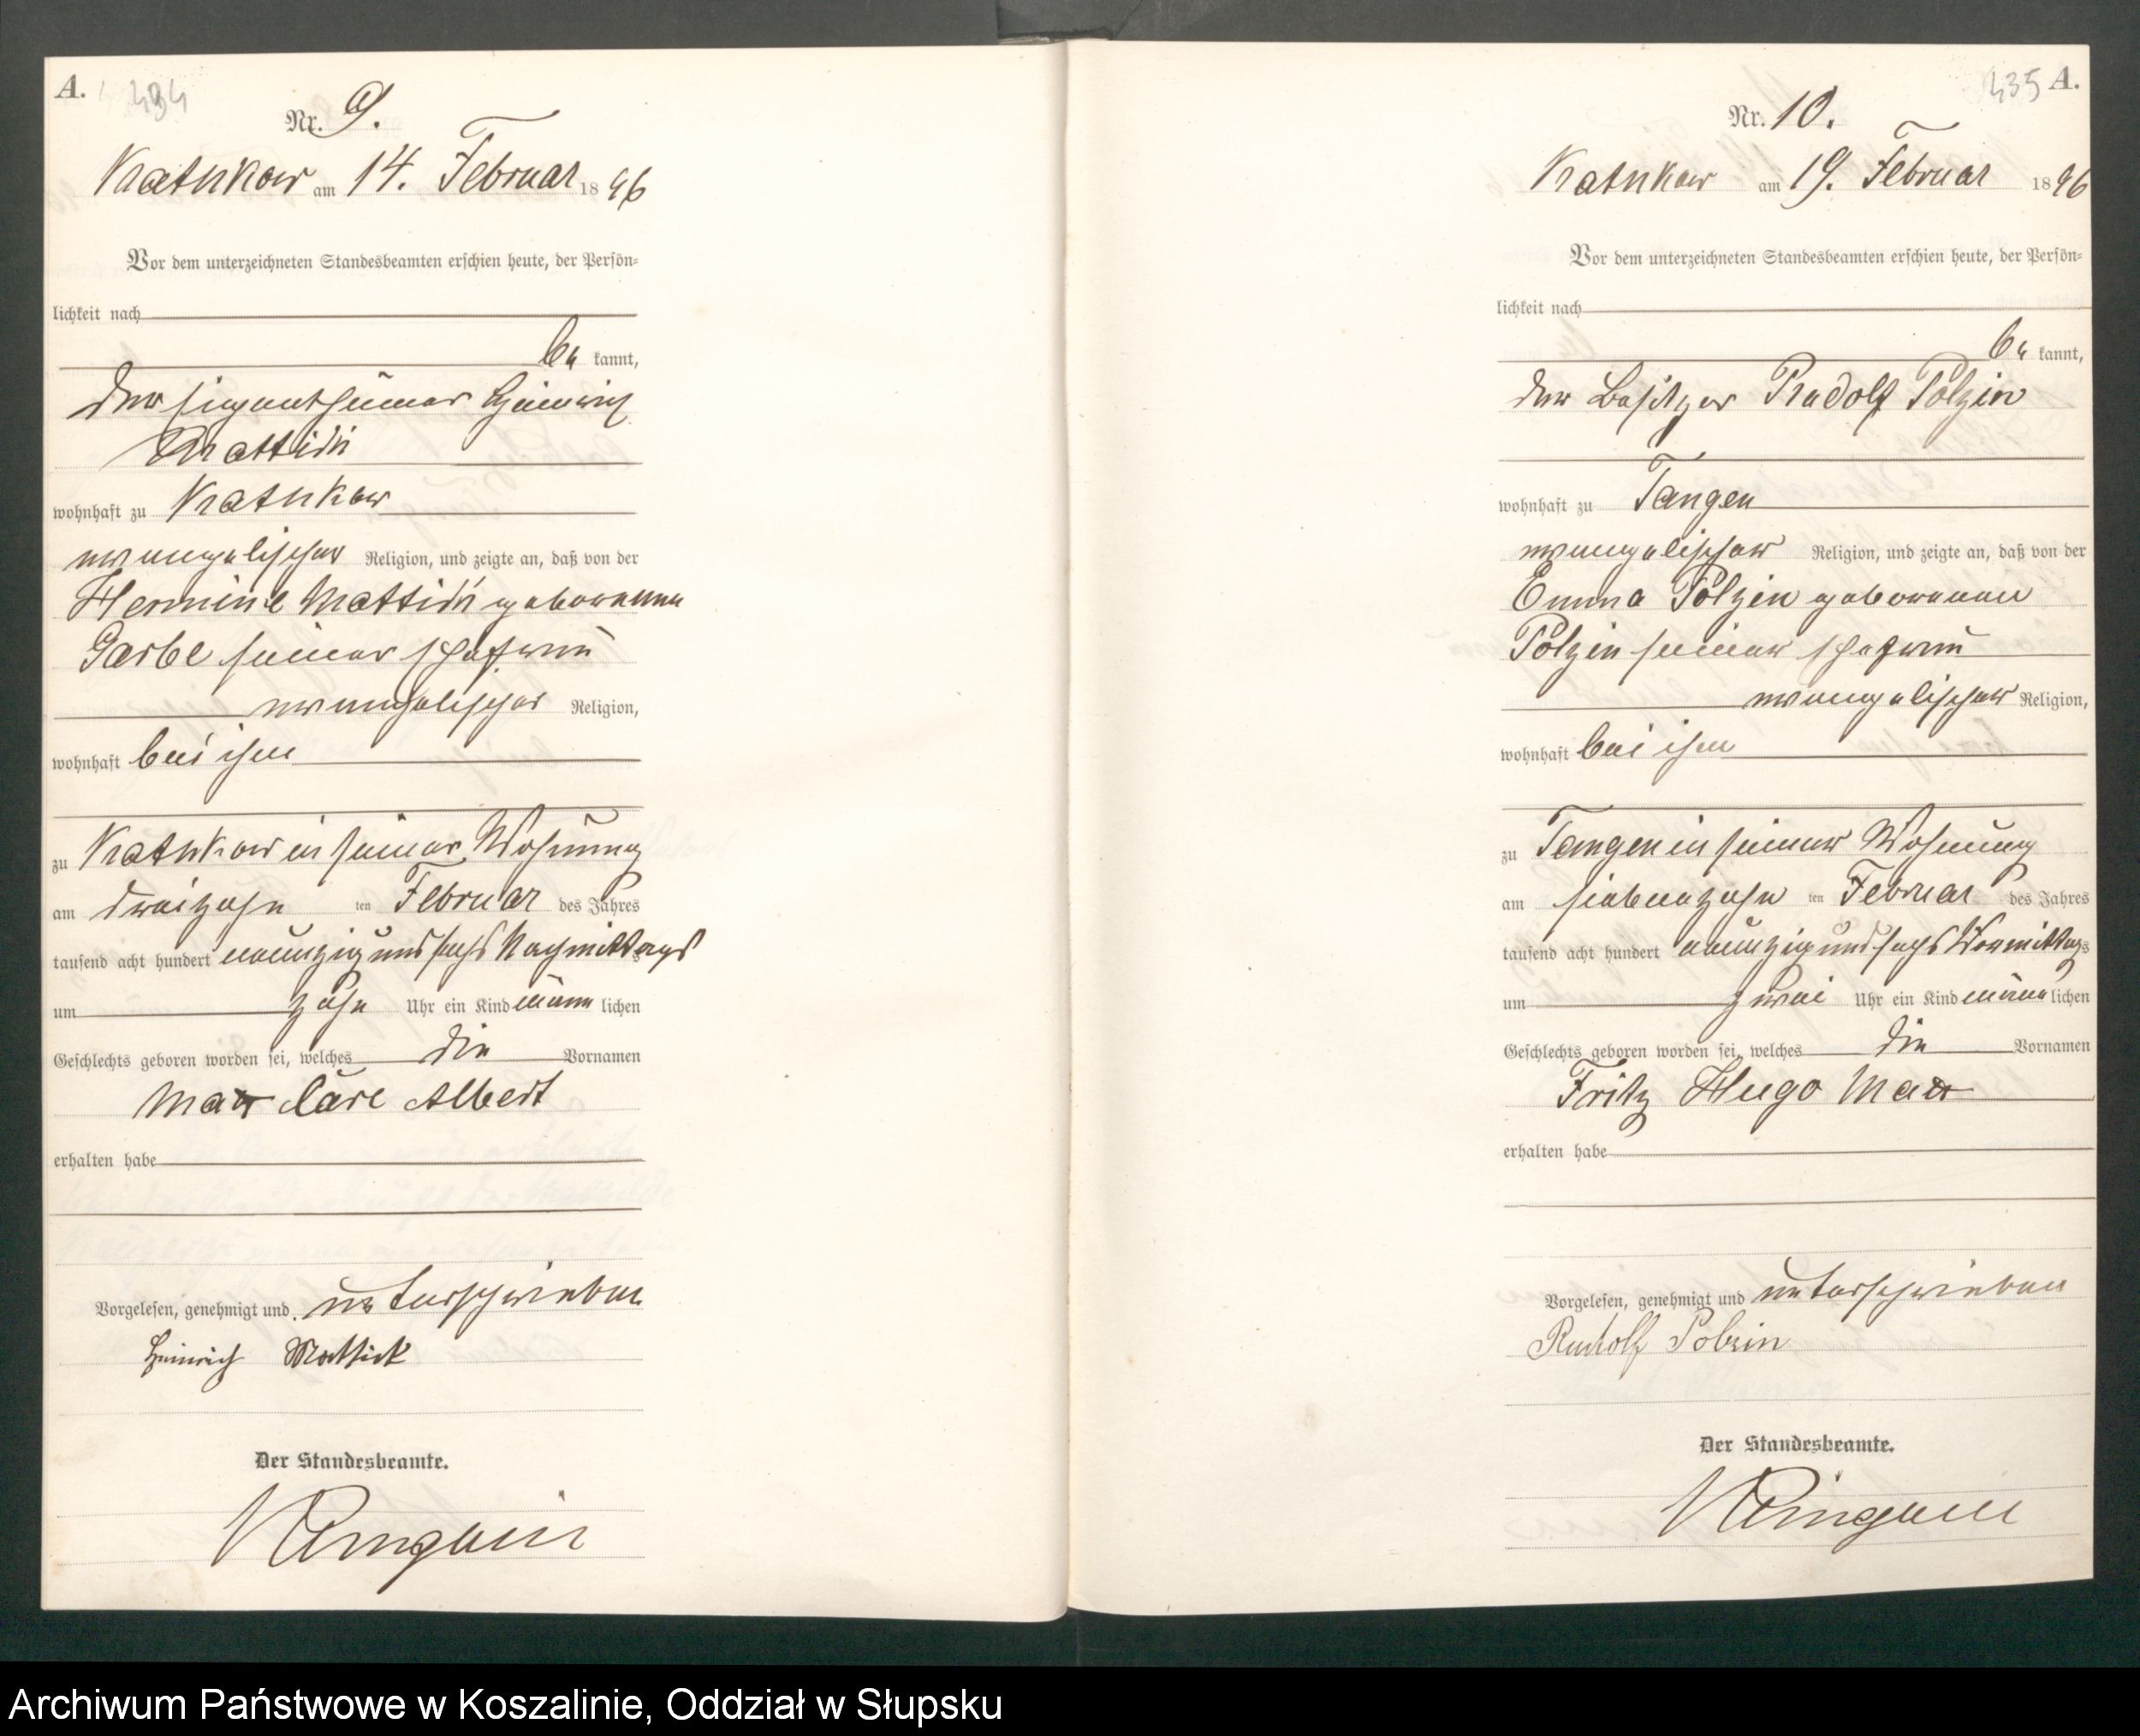 A. 434
Nr. 9.
Kathkow am 14. Februar 1896
Vor dem unterzeichneten Standesbeamten erschien heute, der Persön-
lichkeit nach
be kannt,
der Eigenthümer Heinrich
Mattick
wohnhaft zu Kathkow
evangelischer Religion, und zeigte an, daß von der
Hermine Mattick geborenen
Garbe seiner Ehefrau
evangelischer Religion,
wohnhaft bei ihm
zu Kathkow in seiner Wohnung
am dreizehn ten Februar des Jahres
tausend acht hundert neunzig und sechs Nachmittags
um zehn Uhr ein Kind männ lichen
Geschlechts geboren worden sei, welches die Vornamen
Max Carl Albert
erhalten habe
Vorgelesen, genehmigt und unterschrieben
Heinrich Mattick
Der Standesbeamte.
435 A.
Nr. 10.
Kathkow am 19. Februar 1896
Vor dem unterzeichneten Standesbeamten erschien heute, der Persön-
lichkeit nach
be kannt,
der Besitzer Rudolf Polzin
wohnhaft zu Tangen
evangelischer Religion, und zeigte an, daß von der
Emma Polzin geborenen
Polzin seiner Ehefrau
evangelischer Religion,
wohnhaft bei ihm
zu Tangen in seiner Wohnung
am siebenzehn ten Februar des Jahres
tausend acht hundert neunzig und sechs Vormittags
um zwei Uhr ein Kind männ lichen
Geschlechts geboren worden sei, welches die Vornamen
Fritz Hugo Max
erhalten habe
Vorgelesen, genehmigt und unterschrieben
Rudolf Polzin
Der Standesbeamte.
Archiwum Państwowe w Koszalinie, Oddział w Słupsku